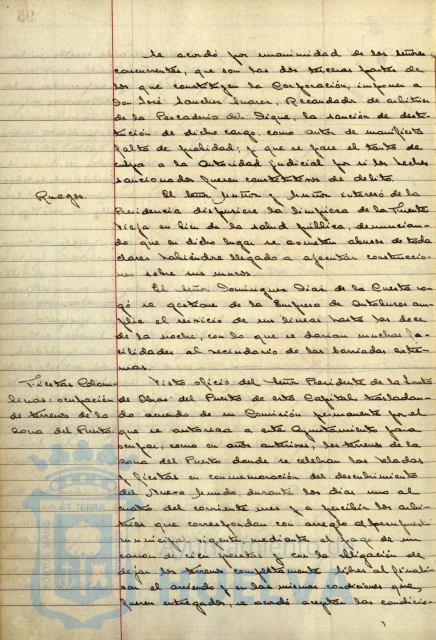 Se acordó por unanimidad de los señores
concurrentes, que son las dos terceras partes de
los que constituyen la Corporación, imponer a
Don José Sanchez Suarez, Recaudador de arbitrios
de la Pescaderia del Dique, la sanción de desti-
tución de dicho cargo, como autor de manifiesta
falta de probidad; y que se pase el tanto de
culpa a la Autoridad judicial por si los hechos
sancionados fueren constitutivos de delito.
Ruegos.
El señor Muñoz y Muñoz interesó de la
Presidencia dispusiera la limpieza de la Fuente
Vieja en bien de la salud pública, denuncian-
do que en dicho lugar se cometen abusos de toda
clases habiéndose llegado a ejecutar construccio-
nes sobre sus muros.
El señor Dominguez Diaz de la Cuesta ro-
gó se gestione de la Empresa de Autobuses am-
plie el servicio de sus lineas hasta las doce
de la noche, con lo que se darian muchas fa-
cilidades al vecindario de las barriadas extre-
mas.
Fiestas Colom-
binas: ocupación
de terrenos de la
zona del Puerto
Visto oficio del señor Presidente de la Junta
de Obras del Puerto de esta Capital trasladan-
do acuerdo de su Comisión permanente por el
que se autoriza a este Ayuntamiento para
ocupar, como en años anteriores, los terrenos de la
zona del Puerto donde se celebran las veladas
y fiestas en conmemoración del descubrimiento
del Nuevo Mundo, durante los dias uno al
cuatro del corriente mes y a percibir los arbi-
trios que correspondan con arreglo al presupuesto
municipal vigente, mediante el pago de un
canon de cien pesetas y con la obligación de
dejar los terrenos completamente libres al finali-
zar el arriendo y en las mismas condiciones que
fueren entregados, se acordó aceptar las condicio-